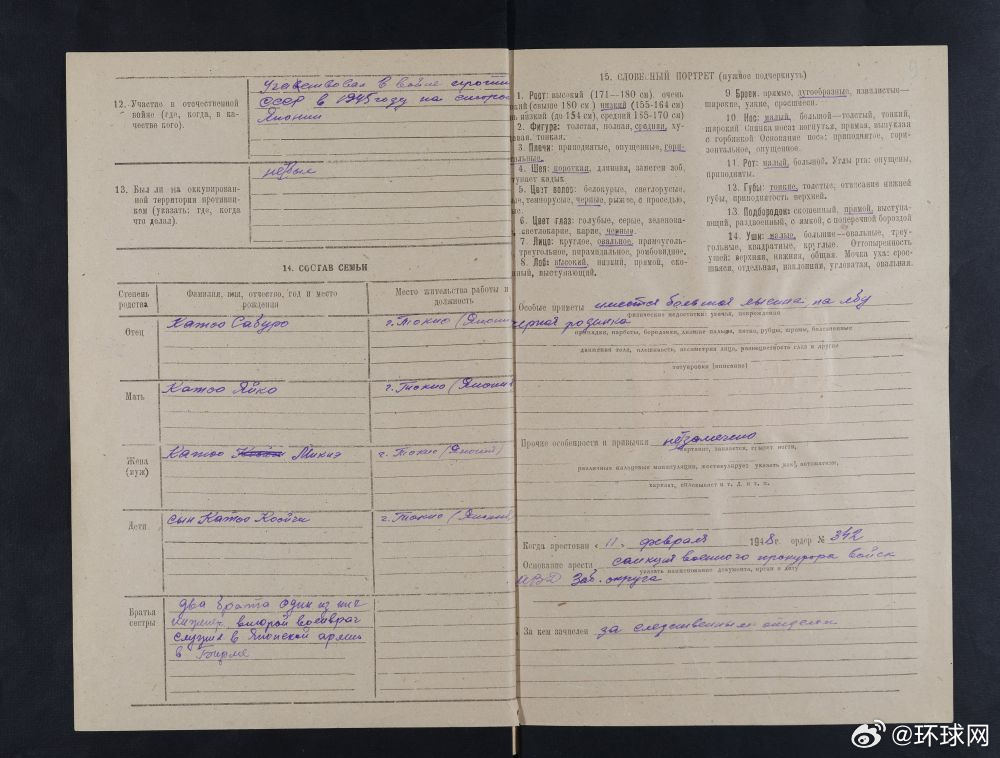 12. Участие в отечественной
войне (где, когда, в ка-
честве кого).
Участвовал в войне против
СССР в 1945 году на стороне
Японии
13. Был ли на оккупирован-
ной территории противни-
ком (указать: где, когда
что делал).
не был
14. СОСТАВ СЕМЬИ
Степень
родства
Фамилия, имя, отчество, год и место
рождения
Место жительства работы и
должность
Отец
Катоо Сабуро
г. Токио (Япони
Мать
Катоо Яйко
г. Токио (Япони
Жена
(муж)
Катоо Микиэ
г. Токио (Япония)
Дети
сын Катоо Коойчи
г. Токио (Япония
Братья
сестры
два брата один из них
инженер, второй военврач
служил в Японской армии
в Бирме
15. СЛОВЕСНЫЙ ПОРТРЕТ (нужное подчеркнуть)
1. Рост: высокий (171—180 см) очень
кий (свыше 180 см) низкий (155-164 см)
низкий (до 154 см), средний 165-170 см)
2. Фигура: толстая, полная, средняя, ху-
дощавая, тонкая.
3. Плечи: приподнятые, опущенные, гори-
зонтальные.
4. Шея: короткая, длинная, заметен зоб,
ступает кадык
5. Цвет волос: белокурые, светлорусые,
ые, темнорусые, черные, рыжие, с проседью,
ые.
6. Цвет глаз: голубые, серые, зеленова-
светлокарие, карие, черные.
7. Лицо: круглое, овальное, прямоуголь-
треугольное, пирамидальное, ромбовидное.
8. Лоб: высокий, низкий, прямой, ско-
ный, выступающий.
9 Брови: прямые, дугообразные, извилистые—
широкие, узкие, сросшиеся.
10 Нос: малый, большой—толстый, тонкий,
широкий Спинка носа: вогнутая, прямая, выпуклая
с горбинкой Основание носа: приподнятое, гори-
зонтальное, опущенное.
11. Рот: малый, большой. Углы рта: опущены,
приподняты.
12. Губы: тонкие, толстые, отвисание нижней
губы, приподнятость верхней.
13. Подбородок: скошенный, прямой, выступа-
ющий, раздвоенный, с ямкой, с поперечной бороздой
14. Уши: малые, большие—овальные, треу-
гольные, квадратные, круглые. Оттопыренность
ушей: верхняя, нижняя, общая. Мочка уха: срос-
шаяся, отдельная, наклонная, угловатая, овальная.
Особые приметы имеется большая лысина на лбу
физические недостатки: увечья, повреждения
черная родинка
движения тела, плешивость, ассиметрия лица, разноцветность глаз и другие
татуировка (описание)
Прочие особенности и привычки не замечено
картавит, заикается,
различные пальцевые манипуляции, жестикулирует
харкает, сплевывает и т. д. и т. п.
Когда арестован «11» февраля 1948 г. ордер № 342
Основание арести санкция военного прокурора войск
указать наименование документа, орган и дату
МВД Заб. округа
За кем зачислен за следственным отделом
@环球网